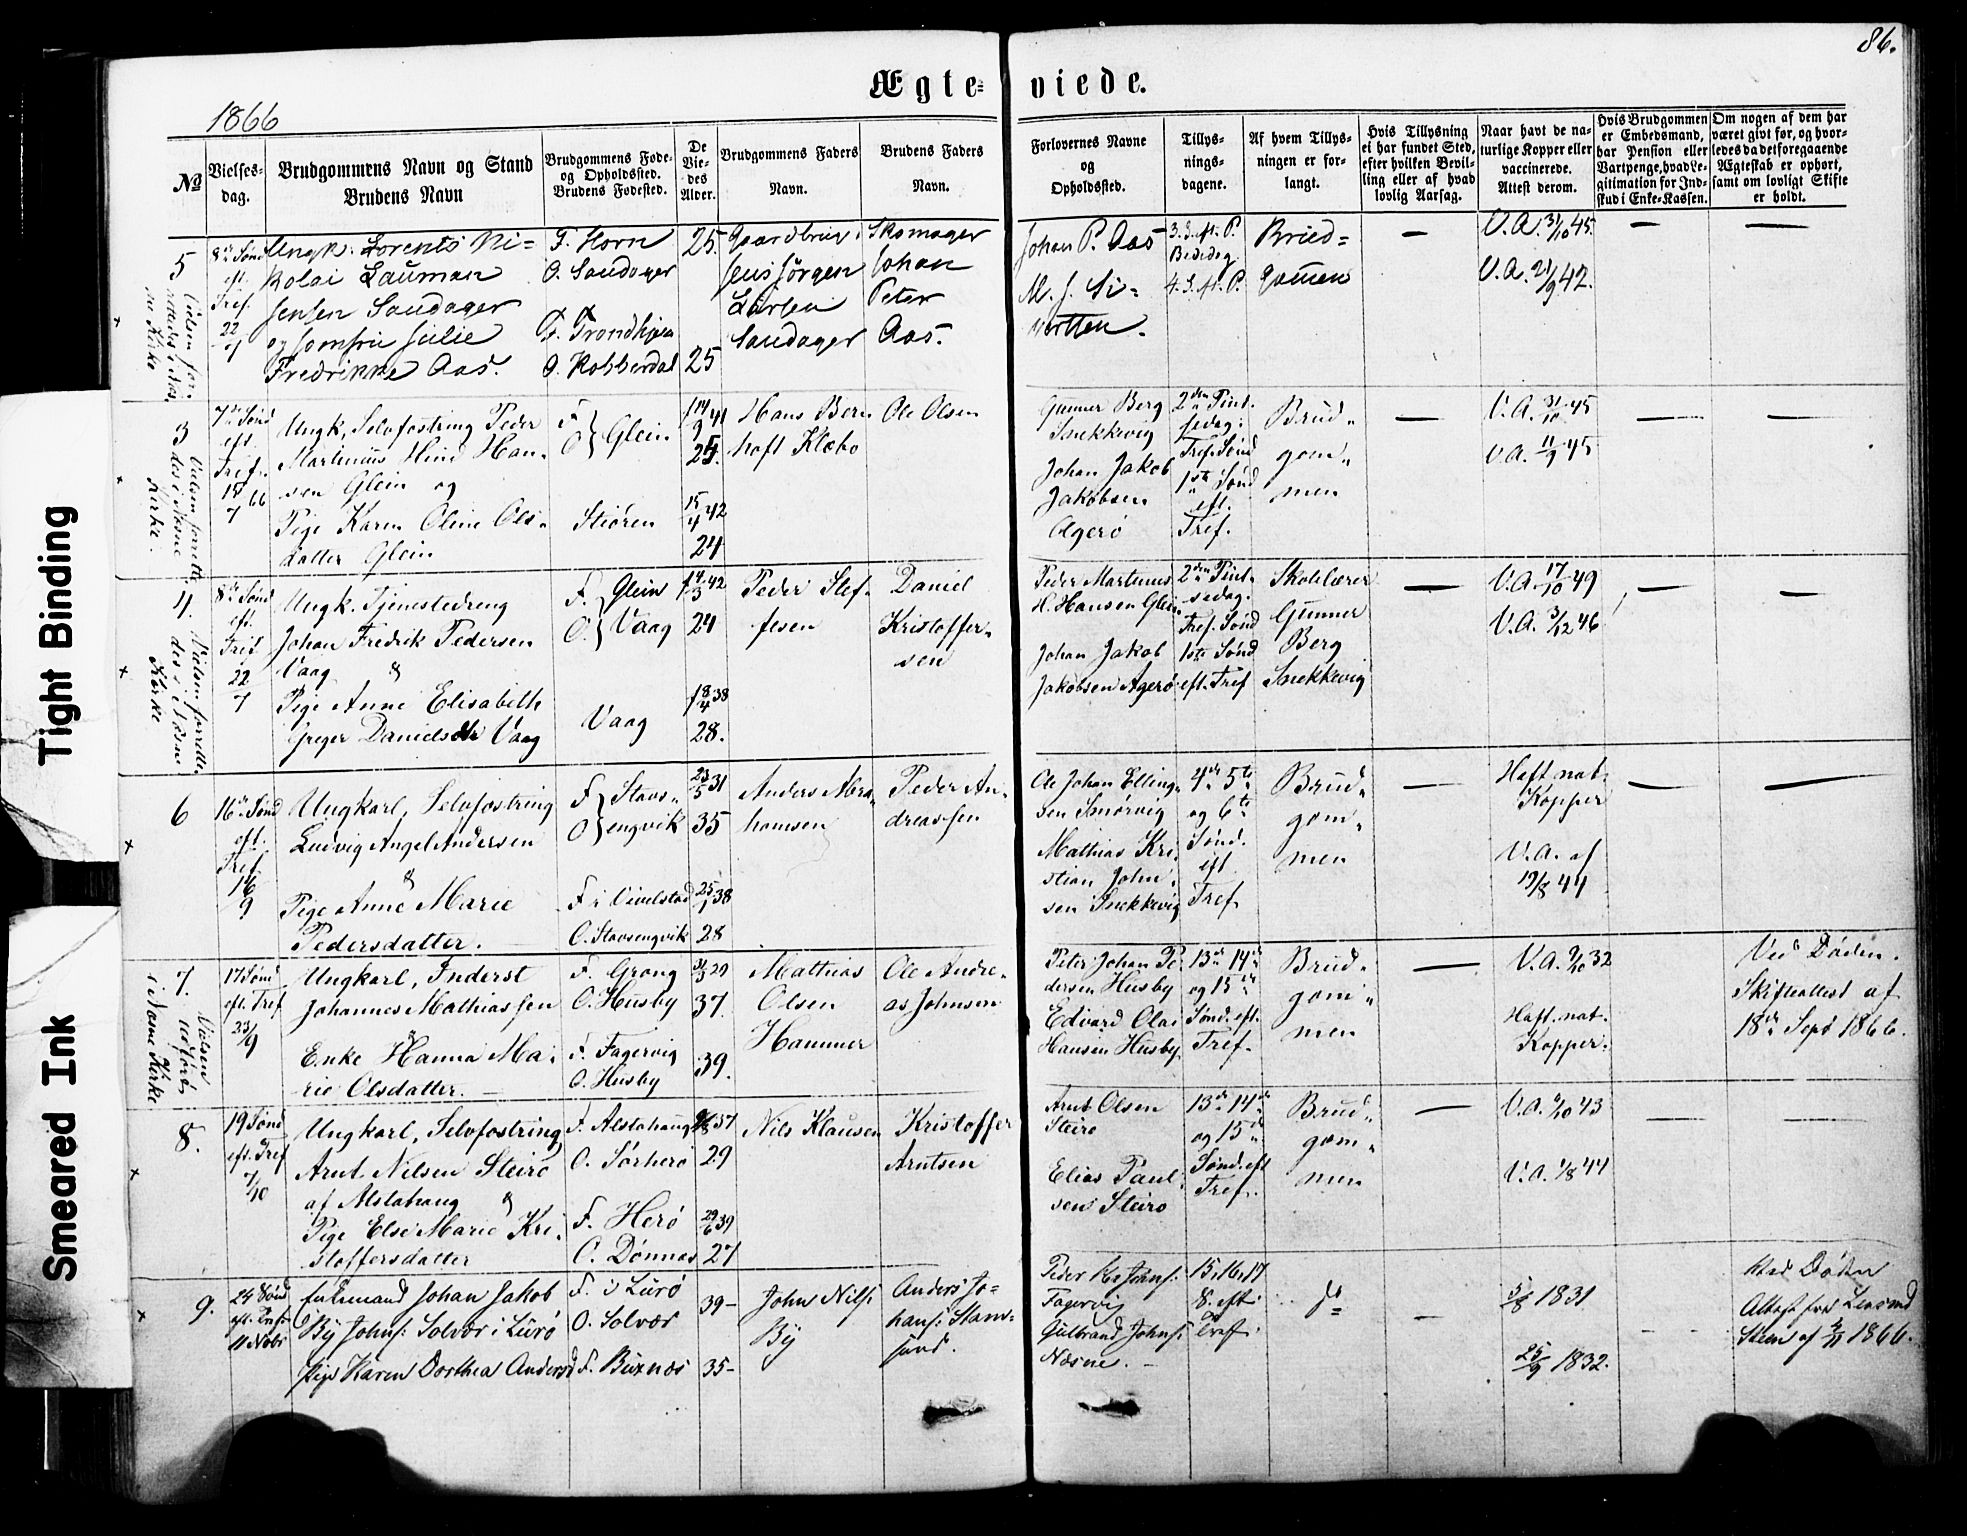 86.
Ægte-viede.
1866
No
Vielses-
dag.
Brudgommens Navn og Stand
Brudens Navn
Brudgommens Føde-
og Opholdssted.
Brudens Fødested.
De
Vie-
des
Alder.
Brudgommens Faders
Navn.
Brudens Faders
Navn.
Forlovernes Navne
og
Opholdssted.
Tillys-
nings-
dagene.
Af hvem Tillys-
ningen er for-
langt.
Hvis Tillysning
ei har fundet Sted,
efter hvilken Bevil-
ling eller af hvad
lovlig Aarsag.
Naar havt de na-
turlige Kopper eller
vaccinerede.
Attest derom.
Hvis Brudgommen
er Embedsmand,
har Pension eller
Vartpenge, hvad Le-
gitimation for Ind-
skud i Enke-Kassen.
Om nogen af dem har
været givt før, og hvor-
ledes da det foregaaende
Ægteskab er ophørt,
samt om lovligt Skifte
er holdt.
5
8de Sønd
eft.
Tref.
22/7
Ungk. Lorents Ni-
kolai Lauman
Jensen Sandager
og Jomfru Julie
Fredrikke Aas.
F. Horn
O. Sandager
F. Trondhjem
O. Kobberdal
25.
25
Gaardbrug.
Jens Jörgen
Larsen
Sandager
Skomager
Johan
Peter
Aas.
Johan P. Aas
M. J. Si-
vertsen.
3. S. ef. P.
Bededag
4. S. ef. P.
Brud-
gommen
—
V.A. 31/10 45.
V.A. 21/9 42.
—
—
3
Vielsen forrette-
des i Næsne
Kirke.
7de Sønd
eft.
Tref.
15/7 66
Ungk, Selvfostring Peder
Martinus Hind Han-
sen Glein og
Pige Karen Oline Ols-
datter Glein
F
O } Glein
Stiören
f 14/9 41
25.
15/4 42
24
Hans Bern
hoft Klæbo
Ole Olsen
Gunner Berg
Snekkevig
Johan Jakob
Jakobsen
Agerö
2den Pint-
sedag:
Tref. Sønd
1ste Sønd
eft.
Tref.
Brud-
gom-
men
—
V.A. 31/10 45
V.A. 11/9 45
—
—
4.
Vielsen forrette-
des i Næsne
Kirke
8de Sønd
eft.
Tref
22/7
Ungk. Tjenestedreng
Johan Fredrik Pedersen
Vaag &
Pige Anne Elisabeth
Greger Danielsdtr Vaag
F. Glein
O. } Vaag
Vaag
f 4/3 42
24
f 18/4 38
28.
Peder Stef-
fesen
Daniel
Kristoffer-
sen
Peder Martinus
H. Hansen Glein
Johan Jakob
Jakobsen Agerö
2den Pint-
sedag.
Tref. Sønd
1ste Sønd
eft. Tref
Skolelærer
Gunner
Berg
Snekkevig
—
V.A. 17/10 49
V.A. 3/12 46
—
—
6
16de Sønd
eft.
Tref
16/9
Ungkarl, Selvfostring
Ludvig Angel Andersen
&
Pige Anne Marie
Pedersdatter.
F
O } Stavs-
engvik
F. i Vivelstad
O. Stavsengvik
23/5 31
35
25/1 38
28
Anders Abra-
hamsen
Peder An-
dreassen
Ole Johan Elling-
sen Smörvig
Mathias Kri-
stian John-
sen Snekkevig
4de 5te
og 6te
Sønd.
eft
Tref
Brud-
gom-
men
—
Haft nat.
Kopper
V.A. af
19/8 44
—
—
7.
Vielsen
udført
i Næsne Kirke
17 Sønd
eft. Tref
23/9
Ungkarl, Inderst
Johannes Mathiassen
&
Enke Hanna Ma-
rie Olsdatter.
F. Grong
O. Husby
F. Fagervig
O. Husby
31/3 29
37
39.
Mathias
Olsen
Hammer
Ole Andre-
as Johnsen
Peter Johan Pe-
dersen Husby
Edvard Olai
Hansen Husby
13de 14de
og 15de
Sønd. eft.
Tref.
Brud-
gom-
men
—
V.A. 9/10 32
Haft. nat.
Kopper.
Ved Döden.
Skifteattest af
18de Sept 1866.
8.
19 Sønd
eft. Tref
7/10
Ungkarl, Selvfostring
Arnt Nilsen Steiro
af Alstahaug &
Pige Else Marie Kri-
stoffersdatter
F. Alstahaug
O. Sörherö
F. Herö
O. Dönnes
37
29
29/6 39
27
Nils Klausen
Kristoffer
Arntsen
Arnt Olsen
Steiro
Elias Paul-
sen Steiro
13de 14de
og 15de
Sønd. eft
Tref.
Brud-
gom-
men
—
V.A. 9/10 43
V.A. 1/8 44
—
—
9.
24 Sønd
eft. Tref.
11 Novbr
Enkemand Johan Jakob
By Johns: Solvær i Lurö
Pige Karen Dorthea Andersd
F. i Lurö
O. Solvær
F. Buxnæs
39-
35-
John Nils:
By
Anders Jo-
hans: Stam-
sund.
Peder Johns:
Fagervig
Gulbrand Johns:
Næsne.
15, 16, 17
S. eft.
Tref.
do
—
5/8 1831
25/9 1832.
Ved Döden
Attest fra Lensmd
Steen af 1866.
Tight Binding
Smeared Ink